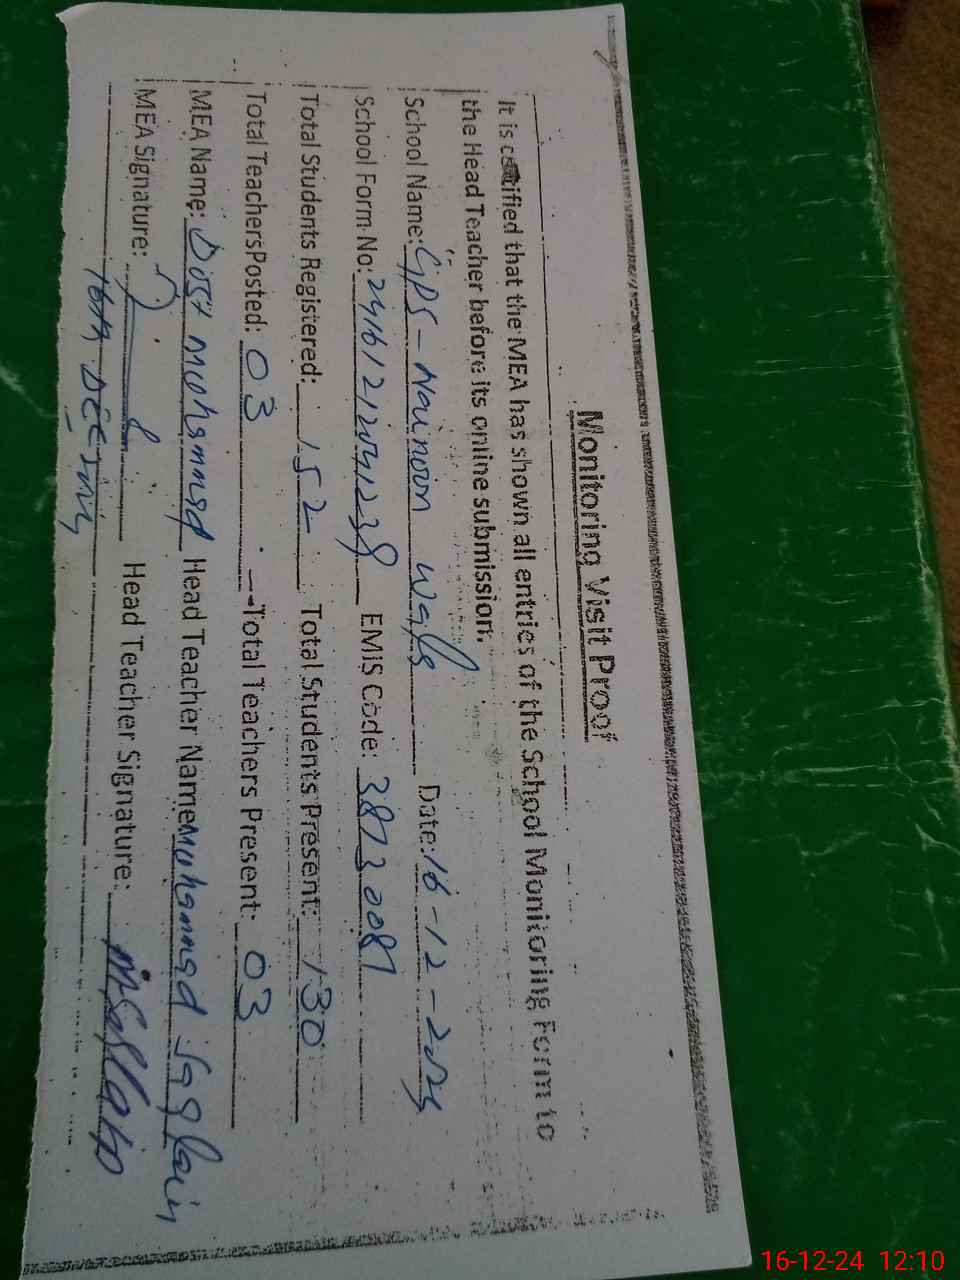 Monitoring Visit Proof
It is certified that the MEA has shown all entries of the School Monitoring Form to
the Head Teacher before its online submission.
School Name: GPS - Nainoon Wala Date: 16-12-2024
School Form No: EMIS Code: 38730087
Total Students Registered: 152 Total Students Present: 130
Total Teachers Posted: 03 Total Teachers Present: 03
MEA Name: Dost Muhammad Head Teacher Name Muhammad Saqlain
MEA Signature: Head Teacher Signature:
16th Dec 2024
16-12-24 12:10